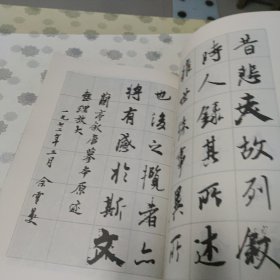 昔悲夫故列敘
時人錄其所述
雖世殊事異所
也後之攬者亦
將有感於斯文
蘭亭敘唐摹本原迹
整理放大
一九七二年三月 余雪曼